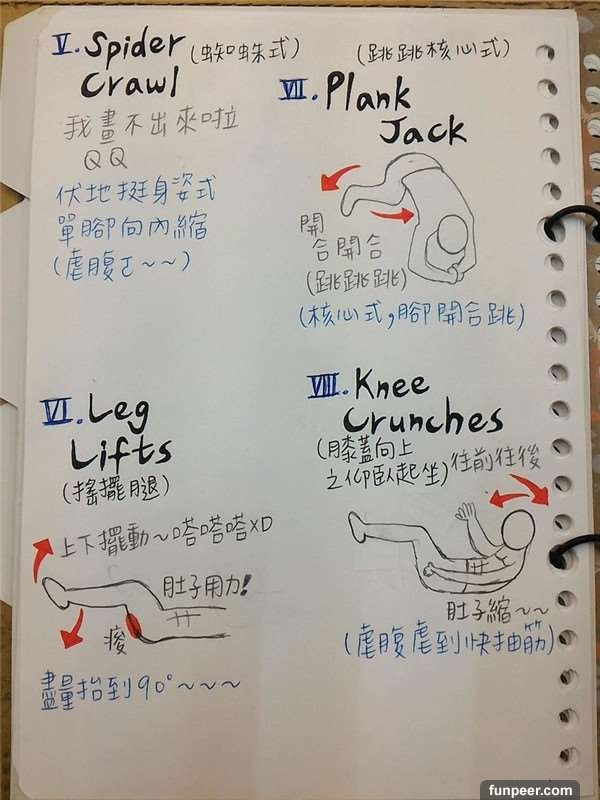 V. Spider (蜘蛛式)
Crawl
我畫不出來啦
QQ
伏地挺身姿式
單腳向內縮
(虐腹ㄛ~~)
VI. Leg
Lifts
(搖擺腿)
上下擺動~嗒嗒嗒XD
肚子用力!
痠
盡量抬到90°~~~
(跳跳核心式)
VII. Plank
Jack
開
合開合
(跳跳跳)
(核心式,腳開合跳)
VIII. Knee
Crunches
(膝蓋向上
之仰臥起坐)往前往後
肚子縮~~
(虐腹虐到快抽筋)
funpeer.com